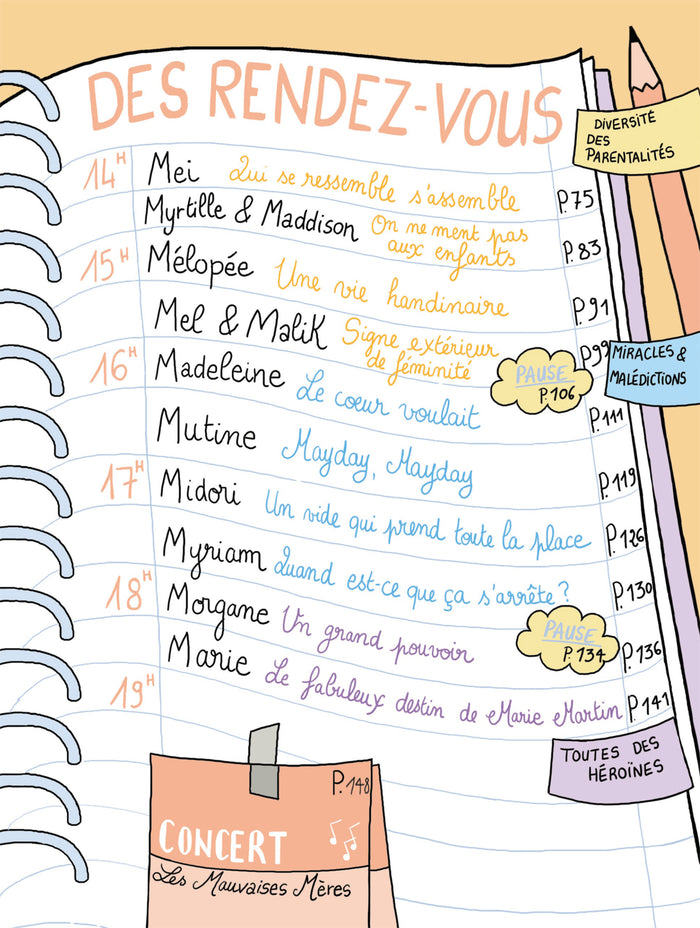 DES RENDEZ-VOUS
DIVERSITÉ
DES
PARENTALITÉS
14H Mei Qui se ressemble s'assemble P.75
Myrtille & Maddison On ne ment pas
aux enfants P.83
15H Mélopée Une vie handinaire P.91
Mel & Malik Signe extérieur
de féminité P.99
PAUSE
P.106
MIRACLES &
MALÉDICTIONS
16H Madeleine Le cœur voulait P.111
Mutine Mayday, Mayday P.119
17H Midori Un vide qui prend toute la place P.126
Myriam Quand est-ce que ça s'arrête ? P.130
PAUSE
P.134
18H Morgane Un grand pouvoir P.136
Marie Le fabuleux destin de Marie Martin P.141
19H
TOUTES DES
HÉROÏNES
P.148
CONCERT
Les Mauvaises Mères